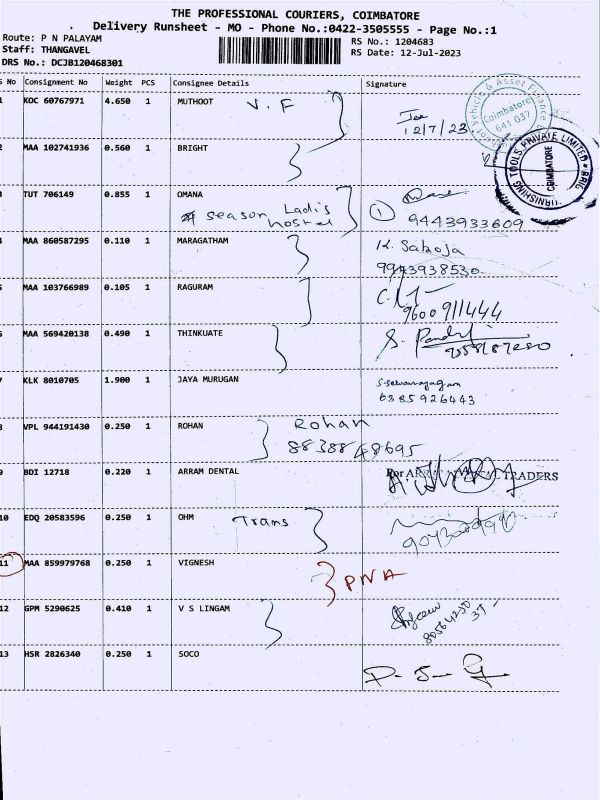 THE PROFESSIONAL COURIERS, COIMBATORE
Delivery Runsheet - MO - Phone No.:0422-3505555 - Page No.:1
Route: P N PALAYAM
Staff: THANGAVEL
DRS No.: DCJB120468301
RS No.: 1204683
RS Date: 12-Jul-2023
S No Consignment No Weight PCS Consignee Details Signature
1 KOC 60767971 4.650 1 MUTHOOT V. F
12/7/23
Coimbatore
641 037
2 MAA 102741936 0.560 1 BRIGHT
TOOLS PRIVATE LIMITED
COIMBATORE
3 TUT 706149 0.855 1 OMANA
season Ladis
hostel
1
9443933609
4 MAA 860587295 0.110 1 MARAGATHAM K. Saroja
9943938530
5 MAA 103766989 0.105 1 RAGURAM
9600911444
6 MAA 569420138 0.490 1 THINKUATE
7 KLK 8010705 1.900 1 JAYA MURUGAN
6385926443
8 VPL 944191430 0.250 1 ROHAN Rohan
8838848695
9 BDI 12718 0.220 1 ARRAM DENTAL
For TRADERS
10 EDQ 20583596 0.250 1 OHM Trans
11 MAA 859979768 0.250 1 VIGNESH PNA
12 GPM 5290625 0.410 1 V S LINGAM
13 HSR 2826340 0.250 1 SOCO